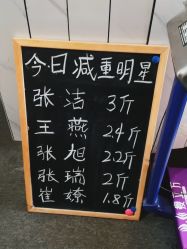 今日减重明星
张洁 3斤
王燕 2.4斤
张旭 2.2斤
张瑞 2斤
崔嫽 1.8斤